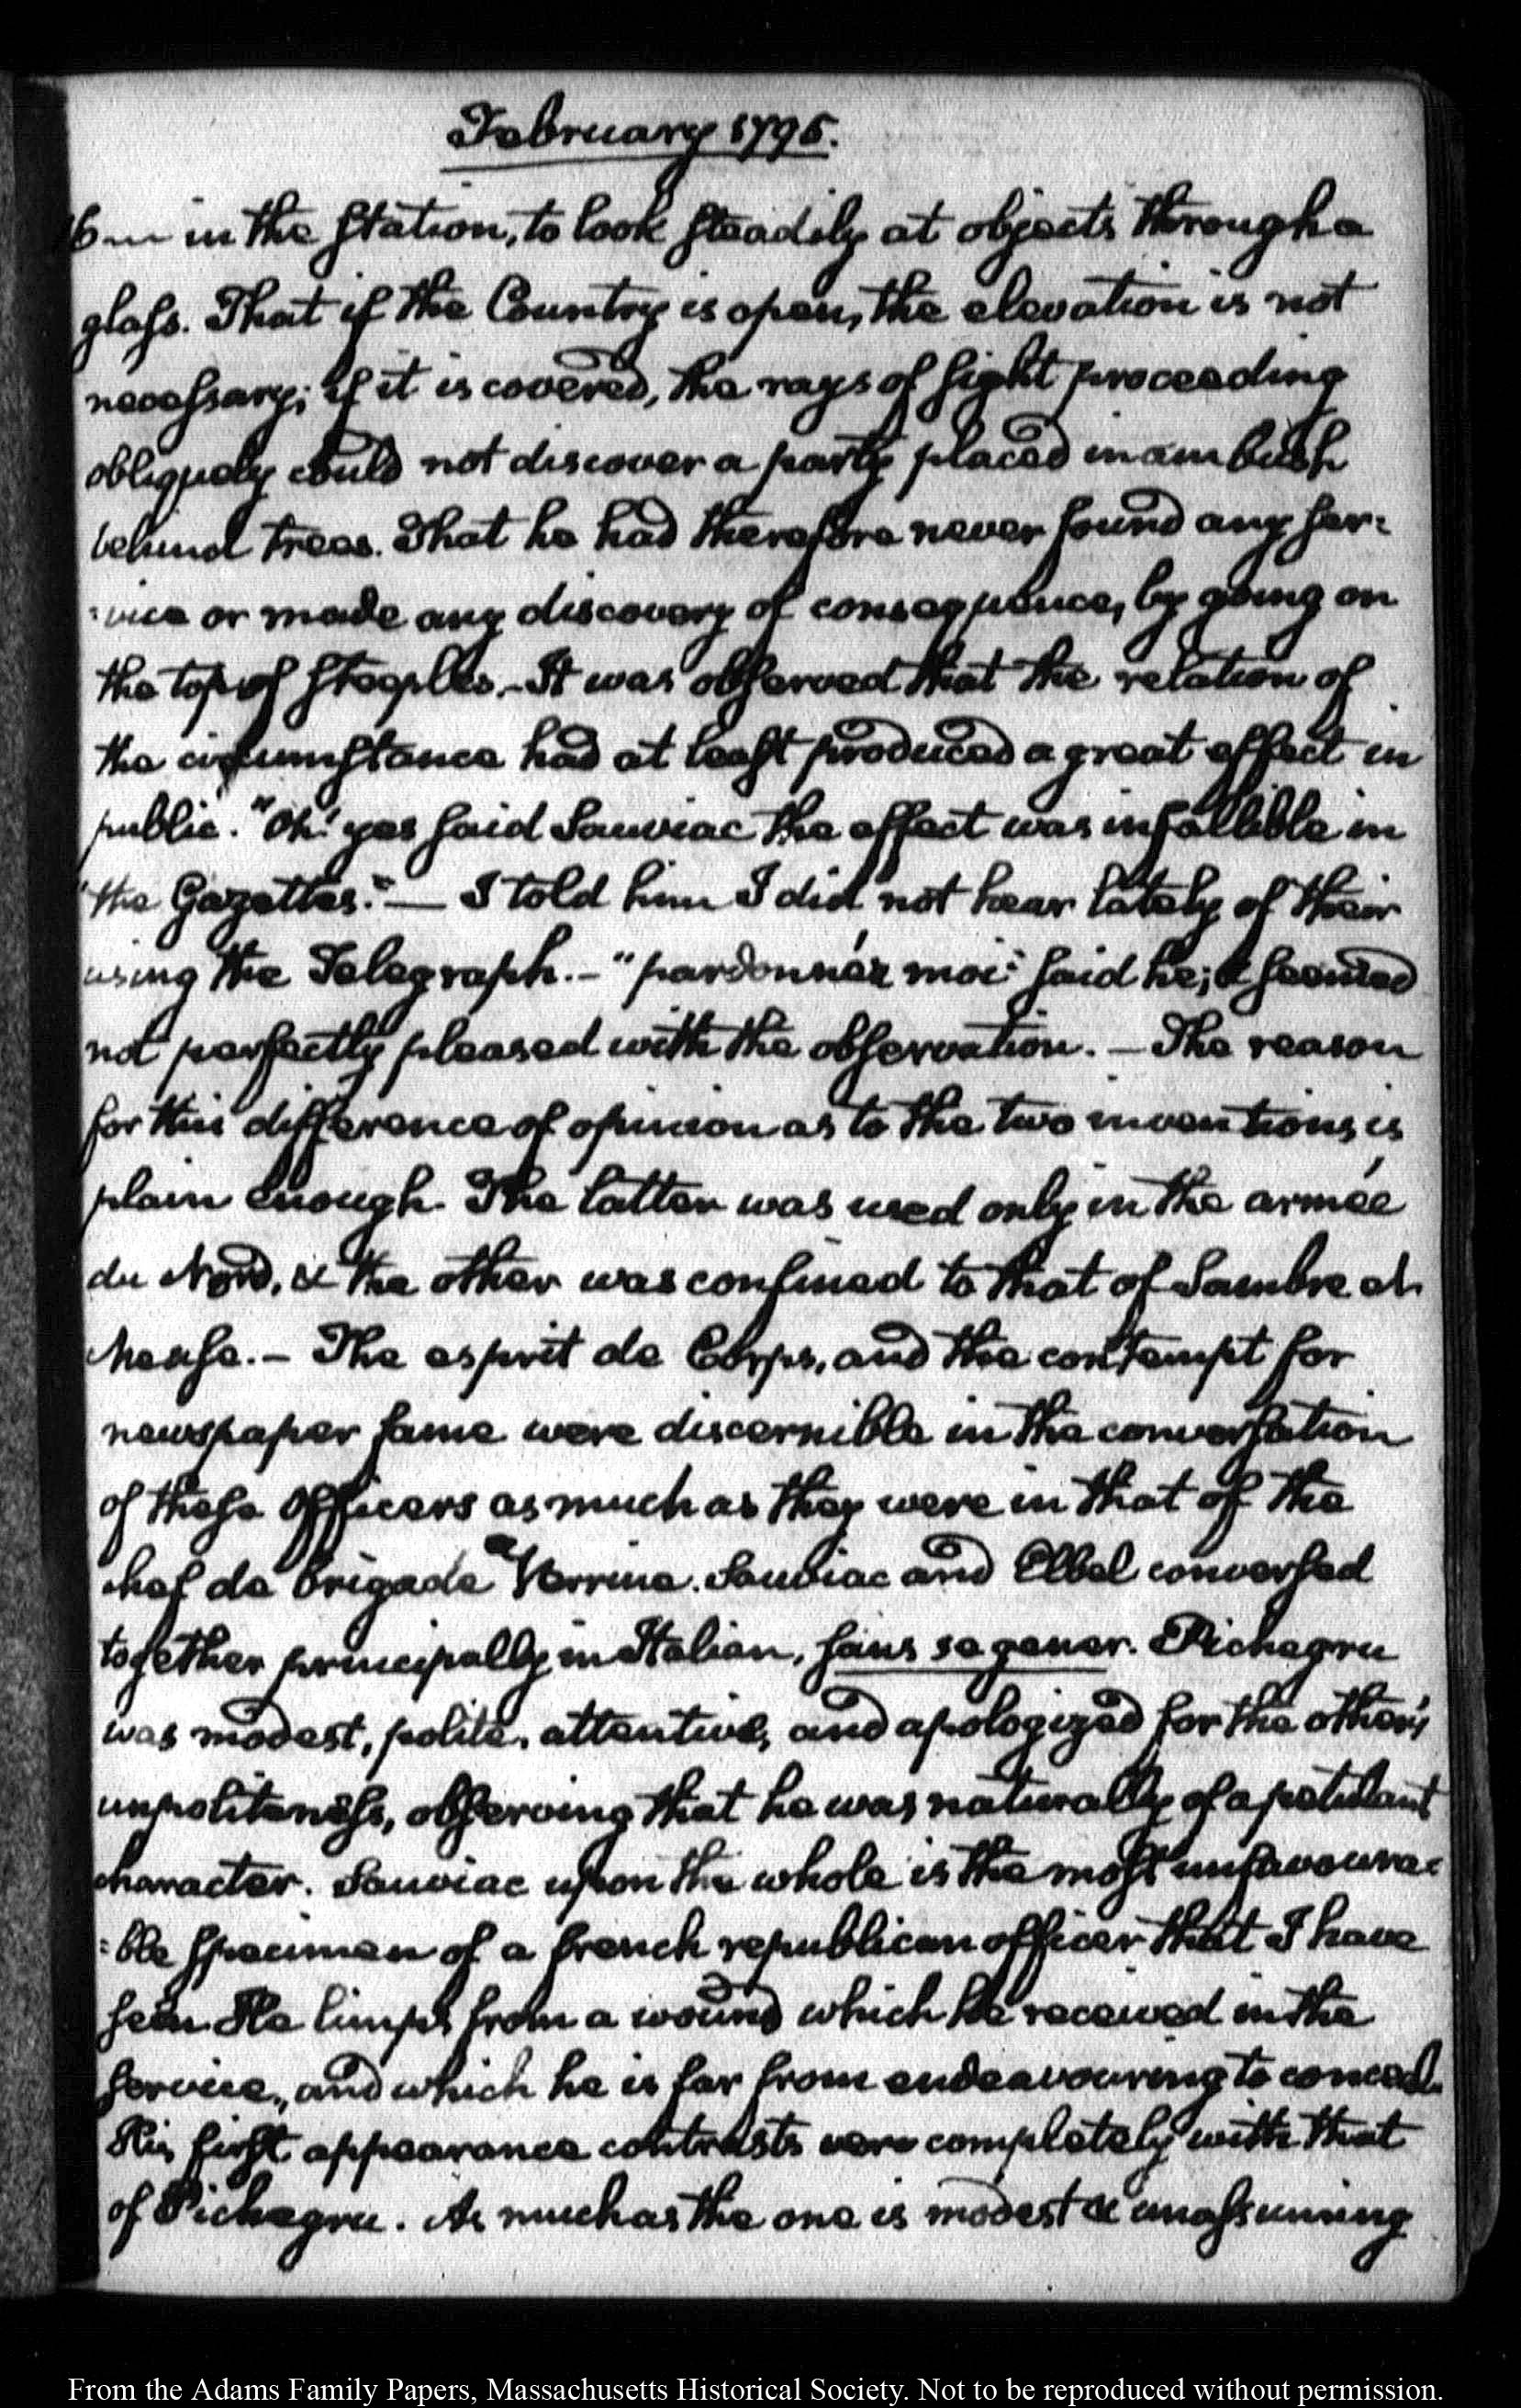 February 1795.
16 in the station, to look steadily at objects through a
glass. That if the Country is open, the elevation is not
necessary; if it is covered, the rays of sight proceeding
obliquely could not discover a party placed in ambush
behind trees. That he had therefore never found any ser=
=vice or made any discovery of consequence, by going on
the top of steeples.— It was observed that the relation of
the circumstance had at least produced a great effect in
public. "Oh! yes said Sauviac the effect was infallible in
"the Gazettes."— I told him I did not hear lately of their
using the Telegraph.— "pardonnéz moi" said he; & seemed
not perfectly pleased with the observation.— The reason
for this difference of opinion as to the two inventions, is
plain enough. The latter was used only in the armée
du Nord, & the other was confined to that of Sambre et
Meuse.— The esprit de Corps, and the contempt for
newspaper fame were discernible in the conversation
of these Officers as much as they were in that of the
chef de brigade a Verrine. Sauviac and Elbel conversed
together principally in Italian, sans se gener. Pichegru
was modest, polite, attentive, and apologized for the other's
unpoliteness, observing that he was naturally of a petulant
character. Sauviac upon the whole is the most unfavoura=
=ble specimen of a french republican officer that I have
seen. He limps from a wound which he received in the
service, and which he is far from endeavouring to conceal.
His first appearance contrasts very completely with that
of Pichegru. As much as the one is modest & unassuming
From the Adams Family Papers, Massachusetts Historical Society. Not to be reproduced without permission.